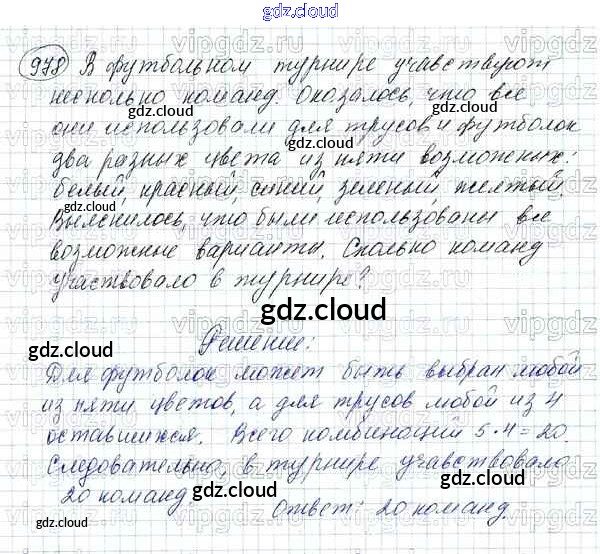 gdz.cloud
978 В футбольном турнире учавствуют
несколько команд. Оказалось, что все
они использовали для трусов и футболок
два разных цвета из пяти возможных:
белый, красный, синий, зеленый желтый.
Выяснилось, что были использованы все
возможные варианты. Сколько команд
участвовало в турнире?
gdz.cloud
Решение:
Для футболок может быть выбран любой
из пяти цветов, а для трусов любой из 4
оставшихся. Всего комбинаций 5·4=20.
Следовательно, в турнире учавствовало
20 команд.
Ответ: 20 команд.
gdz.cloud